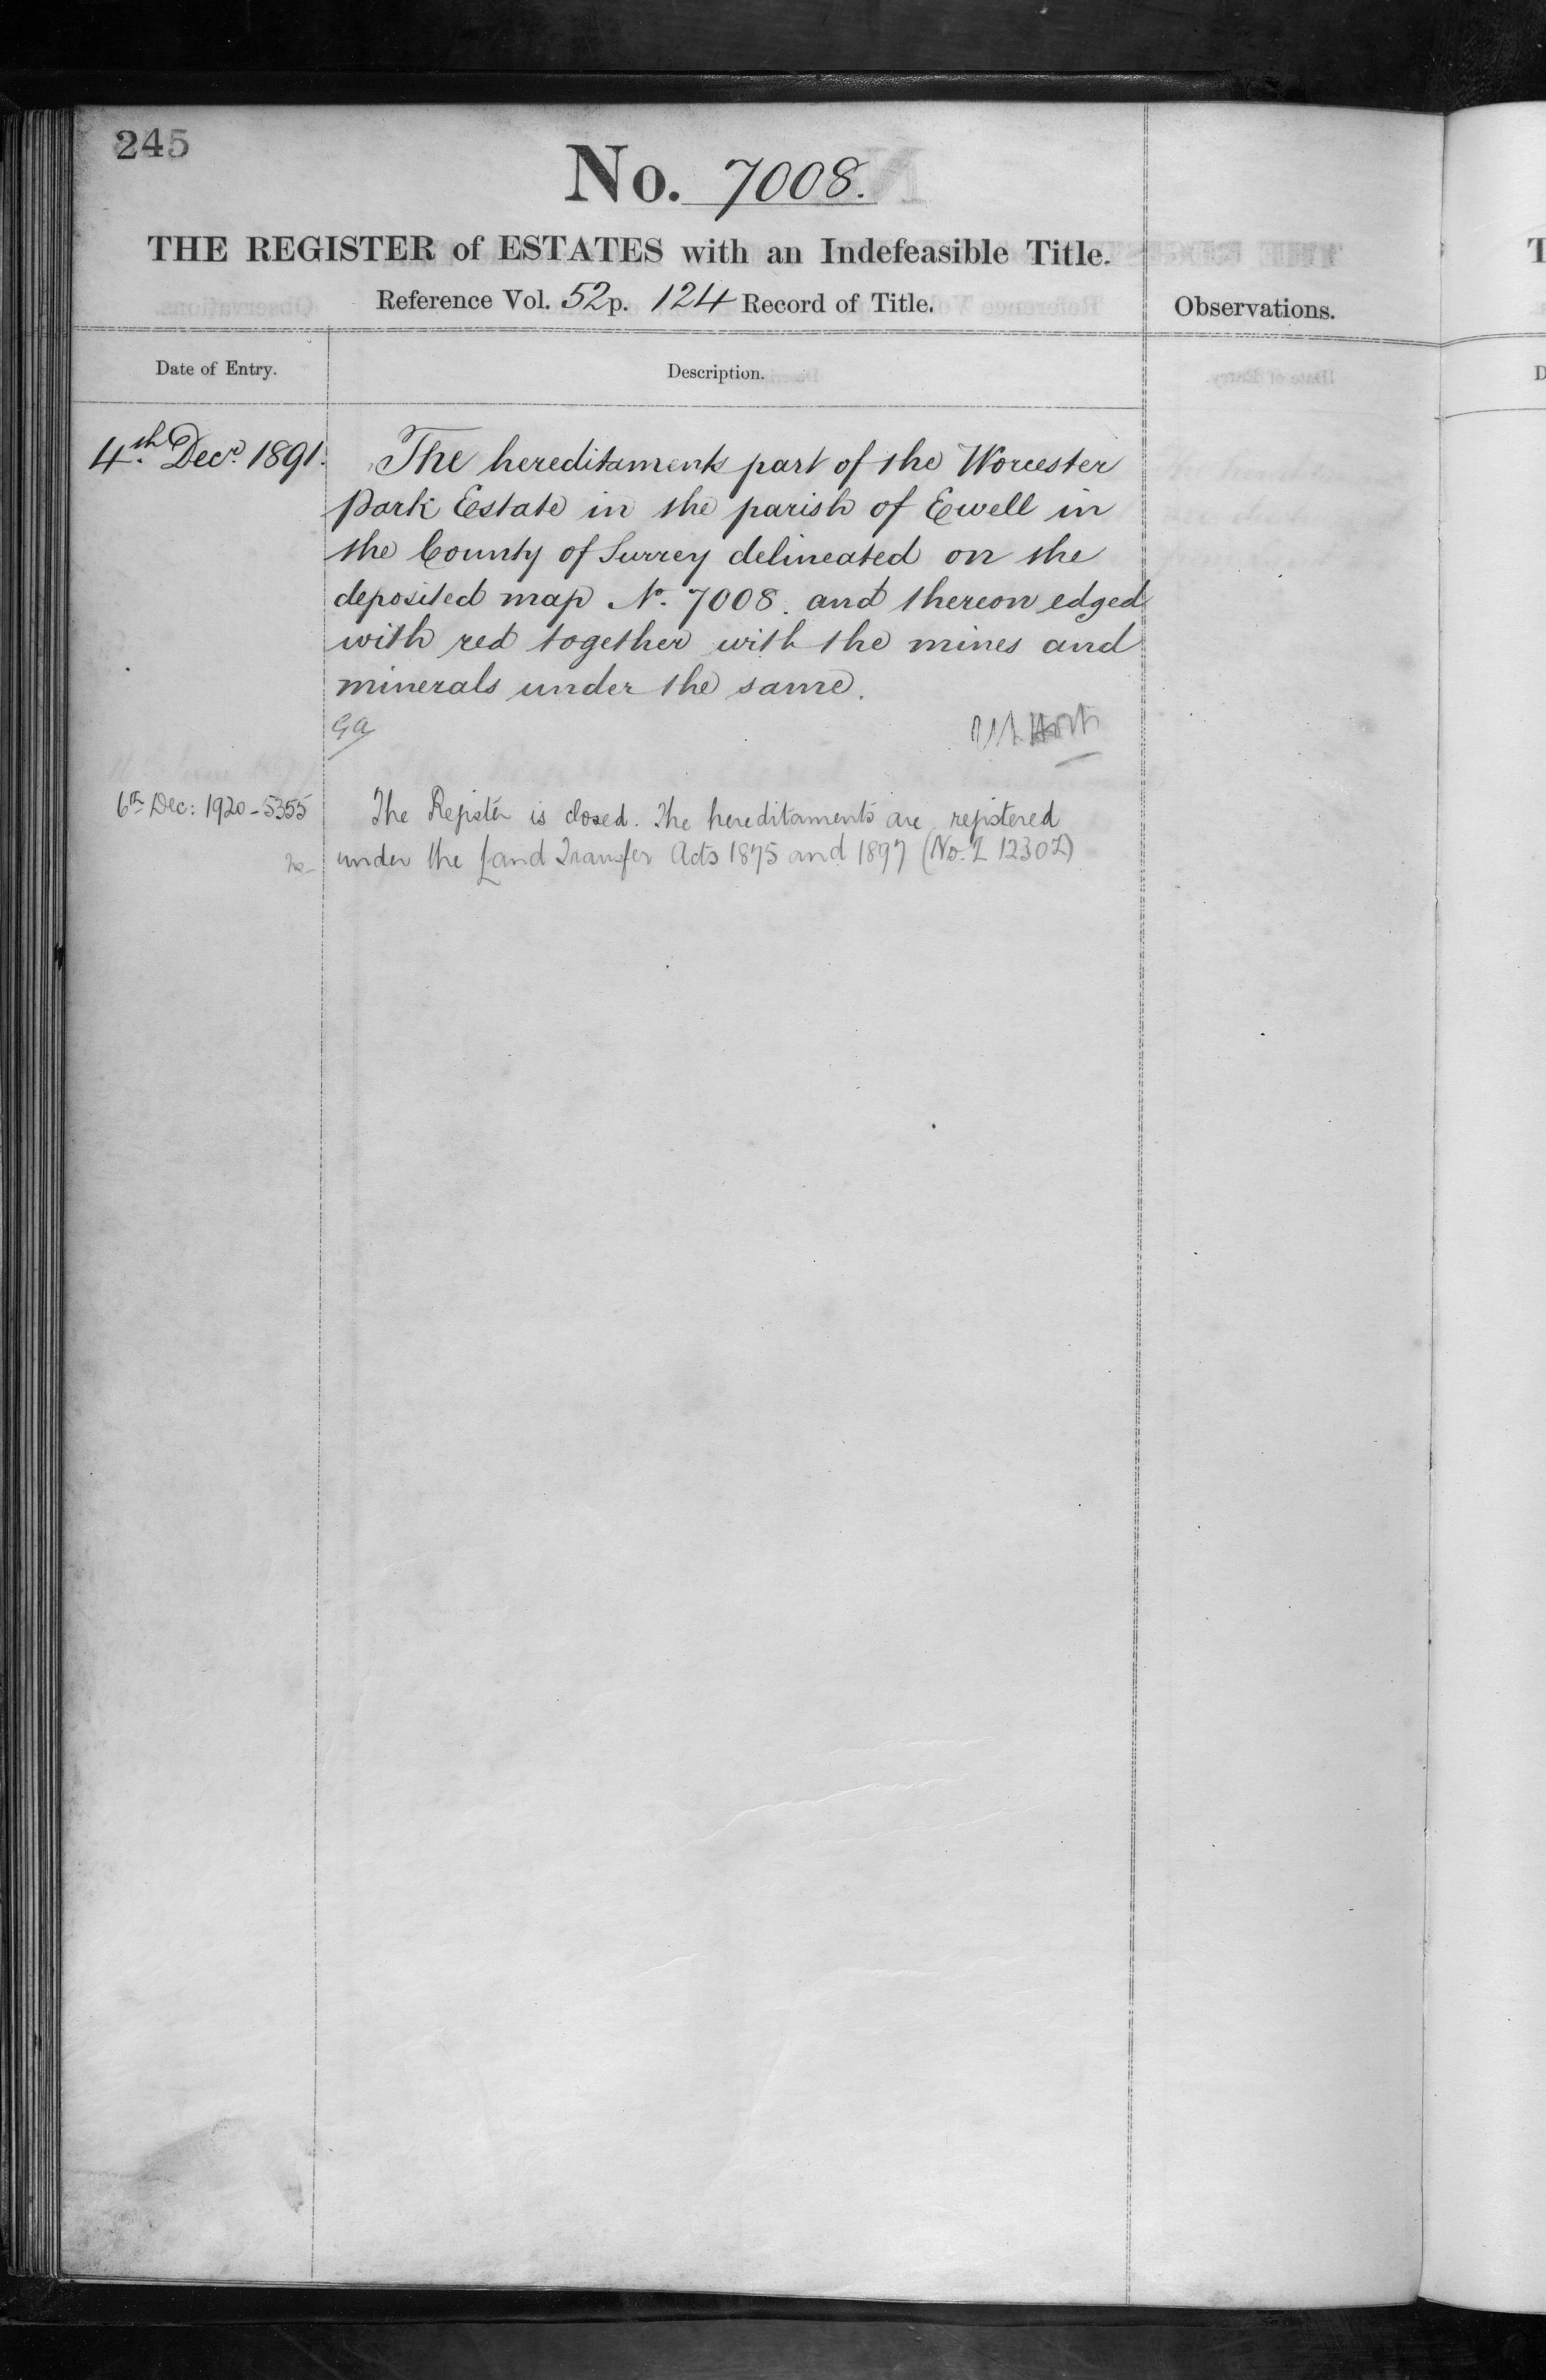 245
No. 7008.
THE REGISTER of ESTATES with an Indefeasible Title.
Reference Vol. 52 p. 124 Record of Title.
Observations.
Date of Entry.
Description.
4th Decr. 1891.
The hereditaments part of the Worcester
Park Estate in the parish of Ewell in
the County of Surrey delineated on the
deposited map No. 7008. and thereon edged
with red together with the mines and
minerals under the same.
GA
6th Dec: 1920 - 5355
The Register is closed. The hereditaments are registered
under the Land Transfer Acts 1875 and 1897